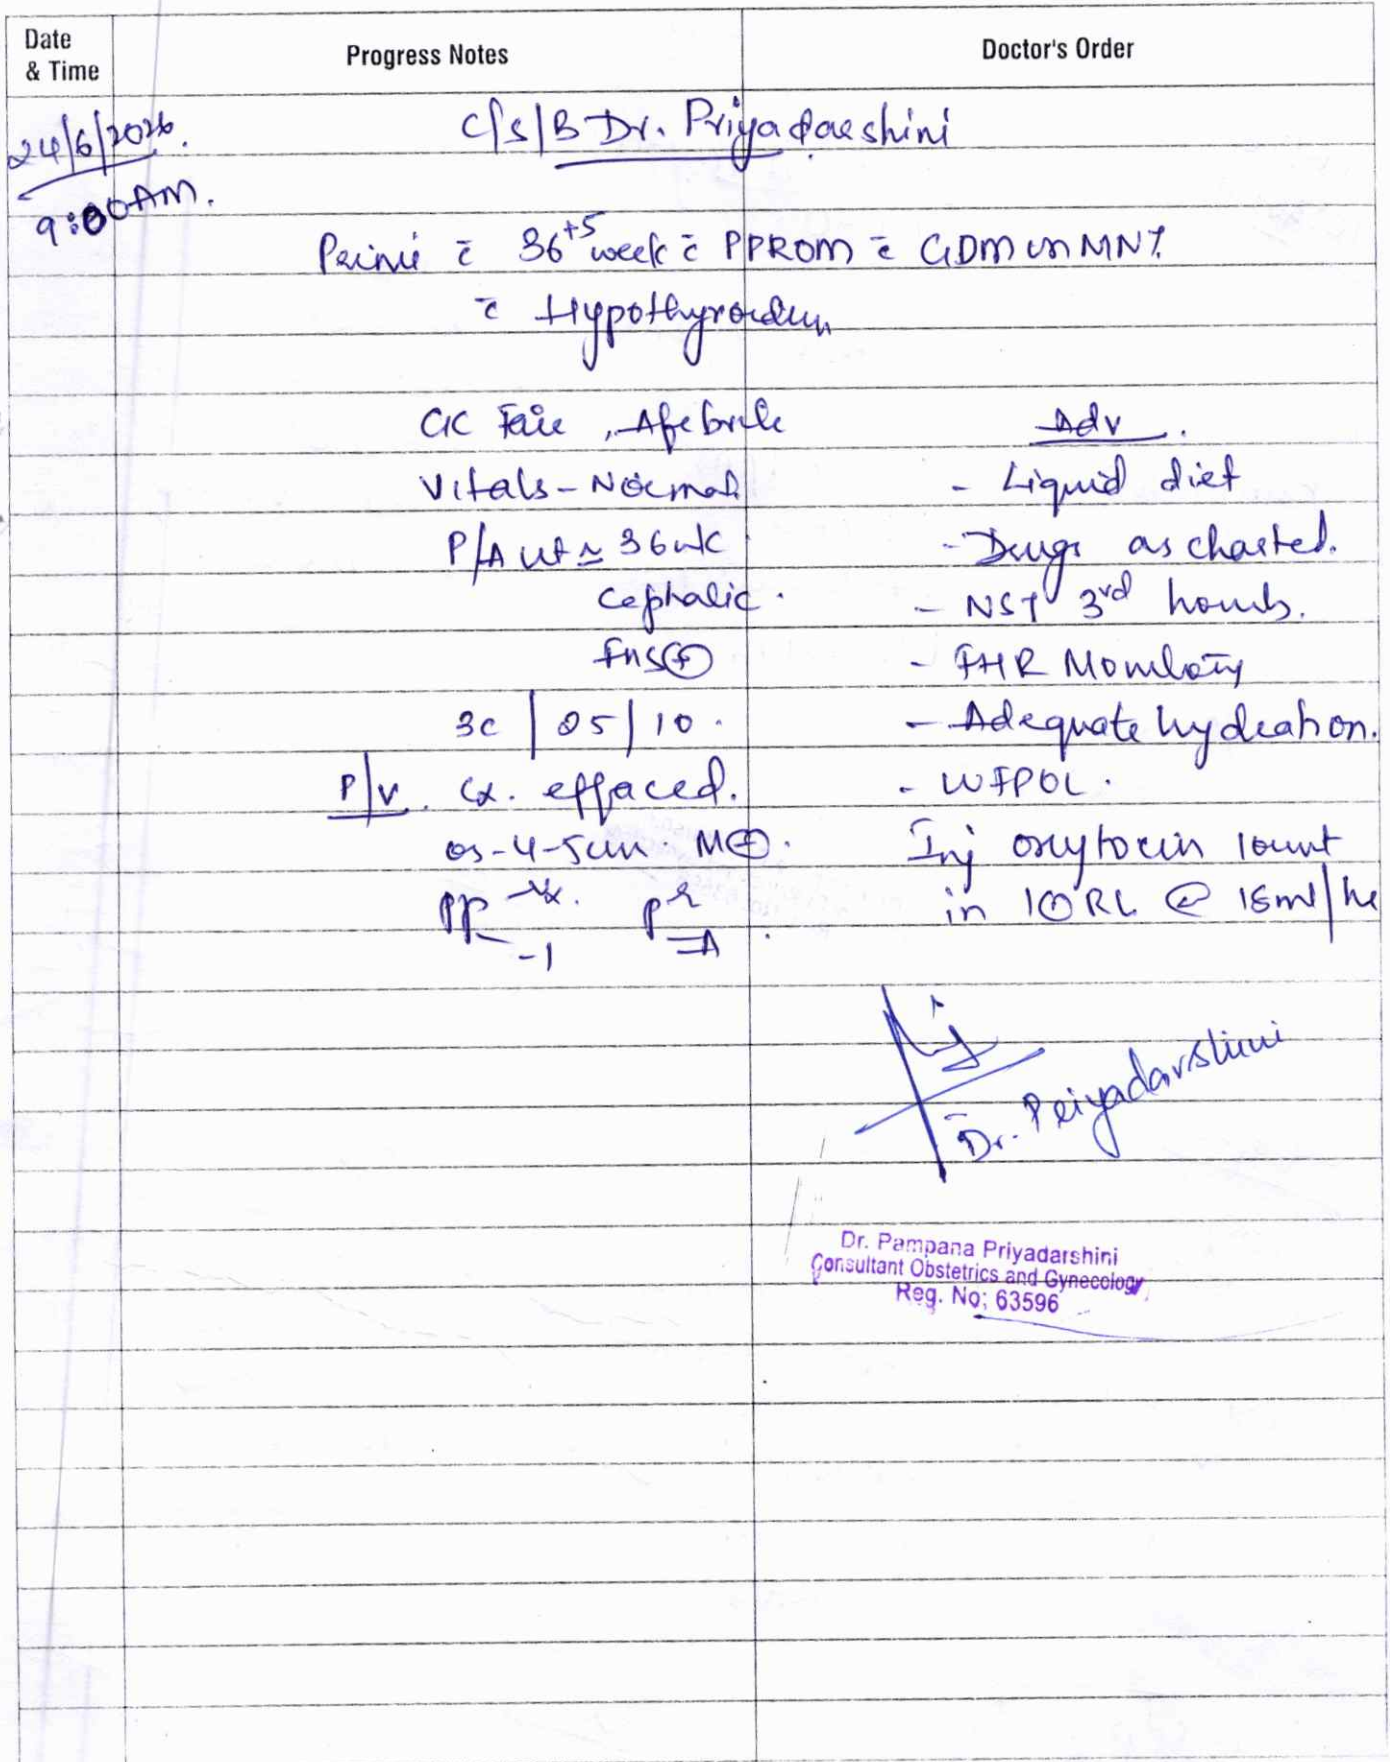 Date & Time
Progress Notes
Doctor's Order
24/6/2026.
9:00AM.
C/S/B Dr. Priyadarshini
Primi c̄ 36+5 week c̄ PPROM c̄ GDM on MNT
c̄ Hypothyroidism
GC Fair, Afebrile
Vitals - Normal
P/A ut ≈ 36wk
Cephalic.
FHS⊕
3c | 25 | 10.
P/V. Cx. effaced.
os-4-5cm. M⊖.
pp Vx. -1
Adv.
- Liquid diet
- Drugs as charted.
- NST 3rd hourly.
- FHR Monitoring
- Adequate hydration.
- WFPOL.
Inj oxytocin 10unit
in 1⊙RL @ 15ml/hr
Dr. Priyadarshini
Dr. Pampana Priyadarshini
Consultant Obstetrics and Gynecology
Reg. No: 63596